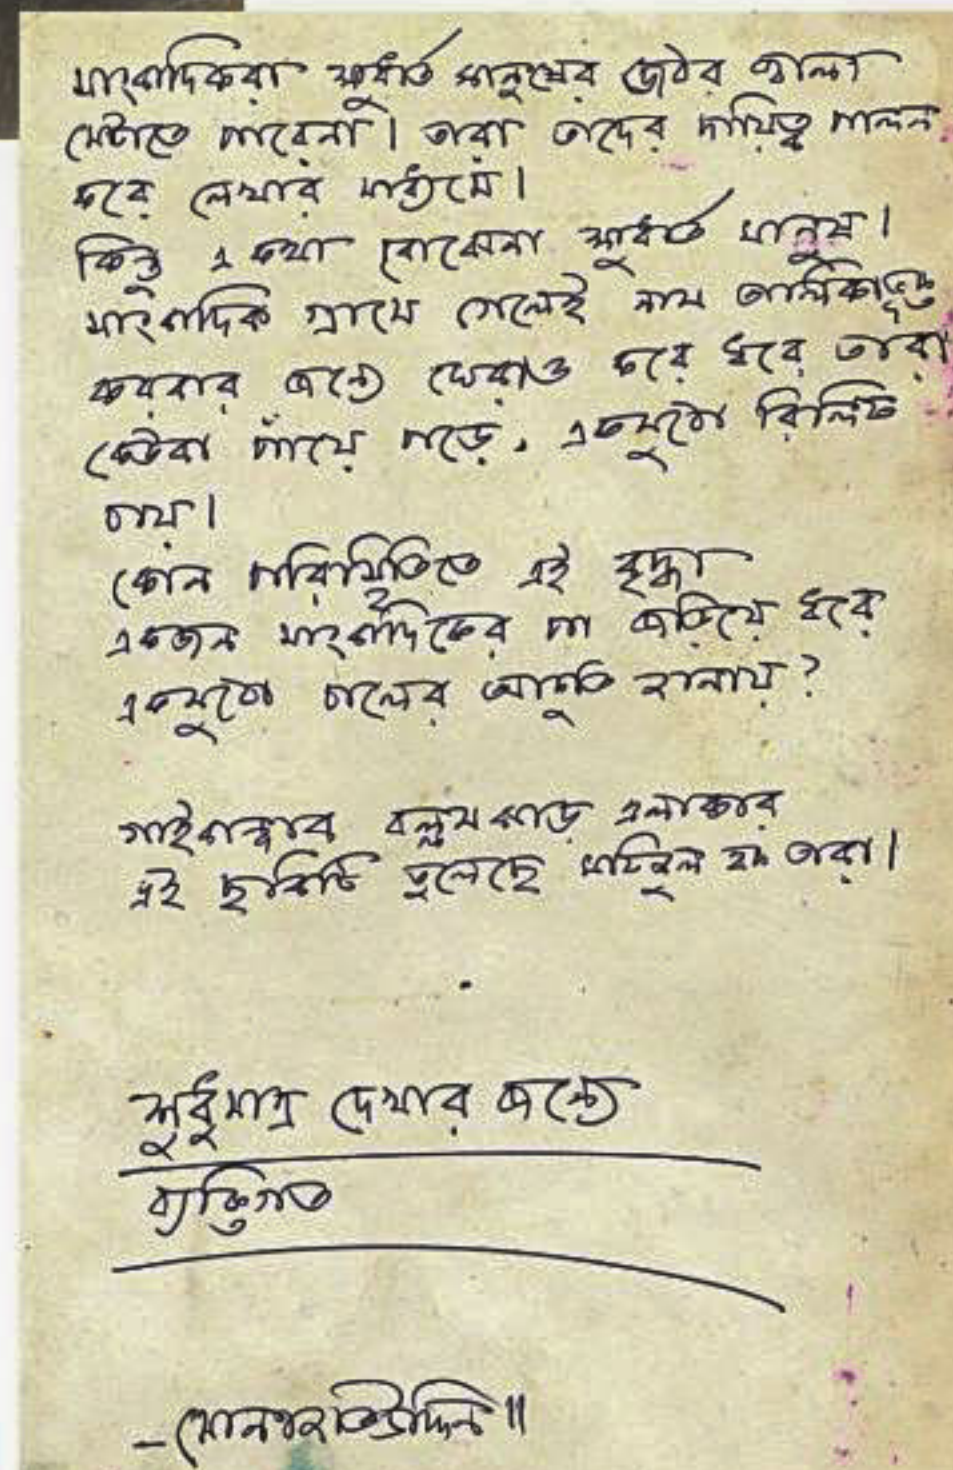 সাংবাদিকরা ক্ষুধার্ত মানুষের জঠর জ্বালা
মেটাতে পারেনা। তারা তাদের দায়িত্ব পালন
করে লেখার মাধ্যমে।
কিন্তু এ কথা বোঝেনা ক্ষুধার্ত মানুষ।
সাংবাদিক গ্রামে গেলেই নাম তালিকাভুক্ত
করবার জন্যে ঘেরাও করে ধরে তারা
কেউবা পায়ে পড়ে, একমুঠো রিলিফ
চায়।
কোন পরিস্থিতিতে এই বৃদ্ধা
একজন সাংবাদিকের পা জড়িয়ে ধরে
একমুঠো চালের আকুতি জানায়?
গাইবান্ধার বল্লমঝাড় এলাকার
এই ছবিটি তুলেছে মাহিবুল হক তারা।
শুধুমাত্র দেখার জন্যে
ব্যক্তিগত
– মোনাজাতউদ্দিন॥